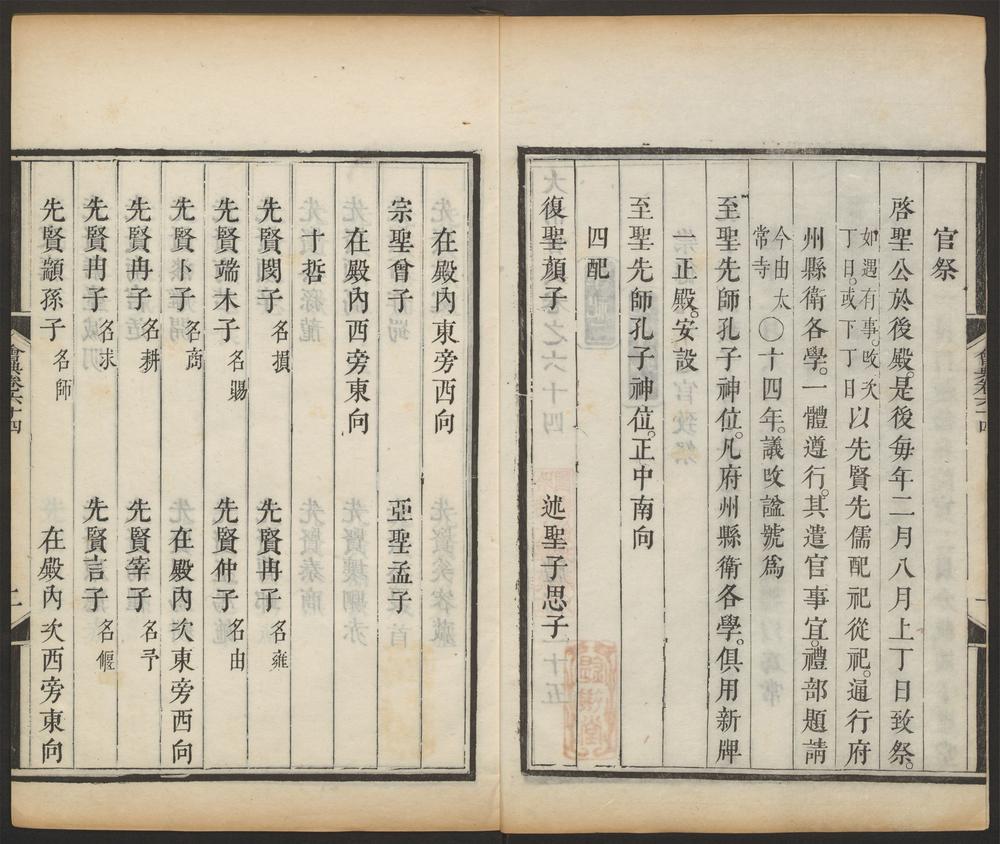 官祭
啓聖公於後殿。是後每年二月八月上丁日致祭。
如遇有事。改次丁日。或下丁日以先賢先儒配祀從祀。通行府
州縣衛各學。一體遵行。其遣官事宜。禮部題請
今由太常寺〇十四年。議改諡號爲
至聖先師孔子神位。凡府州縣衛各學。俱用新牌
一正殿。安設
至聖先師孔子神位。正中南向
四配
復聖顏子 述聖子思子
在殿內東旁西向
宗聖曾子 亞聖孟子
在殿內西旁東向
十哲
先賢閔子名損 先賢冉子名雍
先賢端木子名賜 先賢仲子名由
先賢卜子名商 在殿內次東旁西向
先賢冉子名耕 先賢宰子名予
先賢冉子名求 先賢言子名偃
先賢顓孫子名師 在殿內次西旁東向
會典卷六十四
二